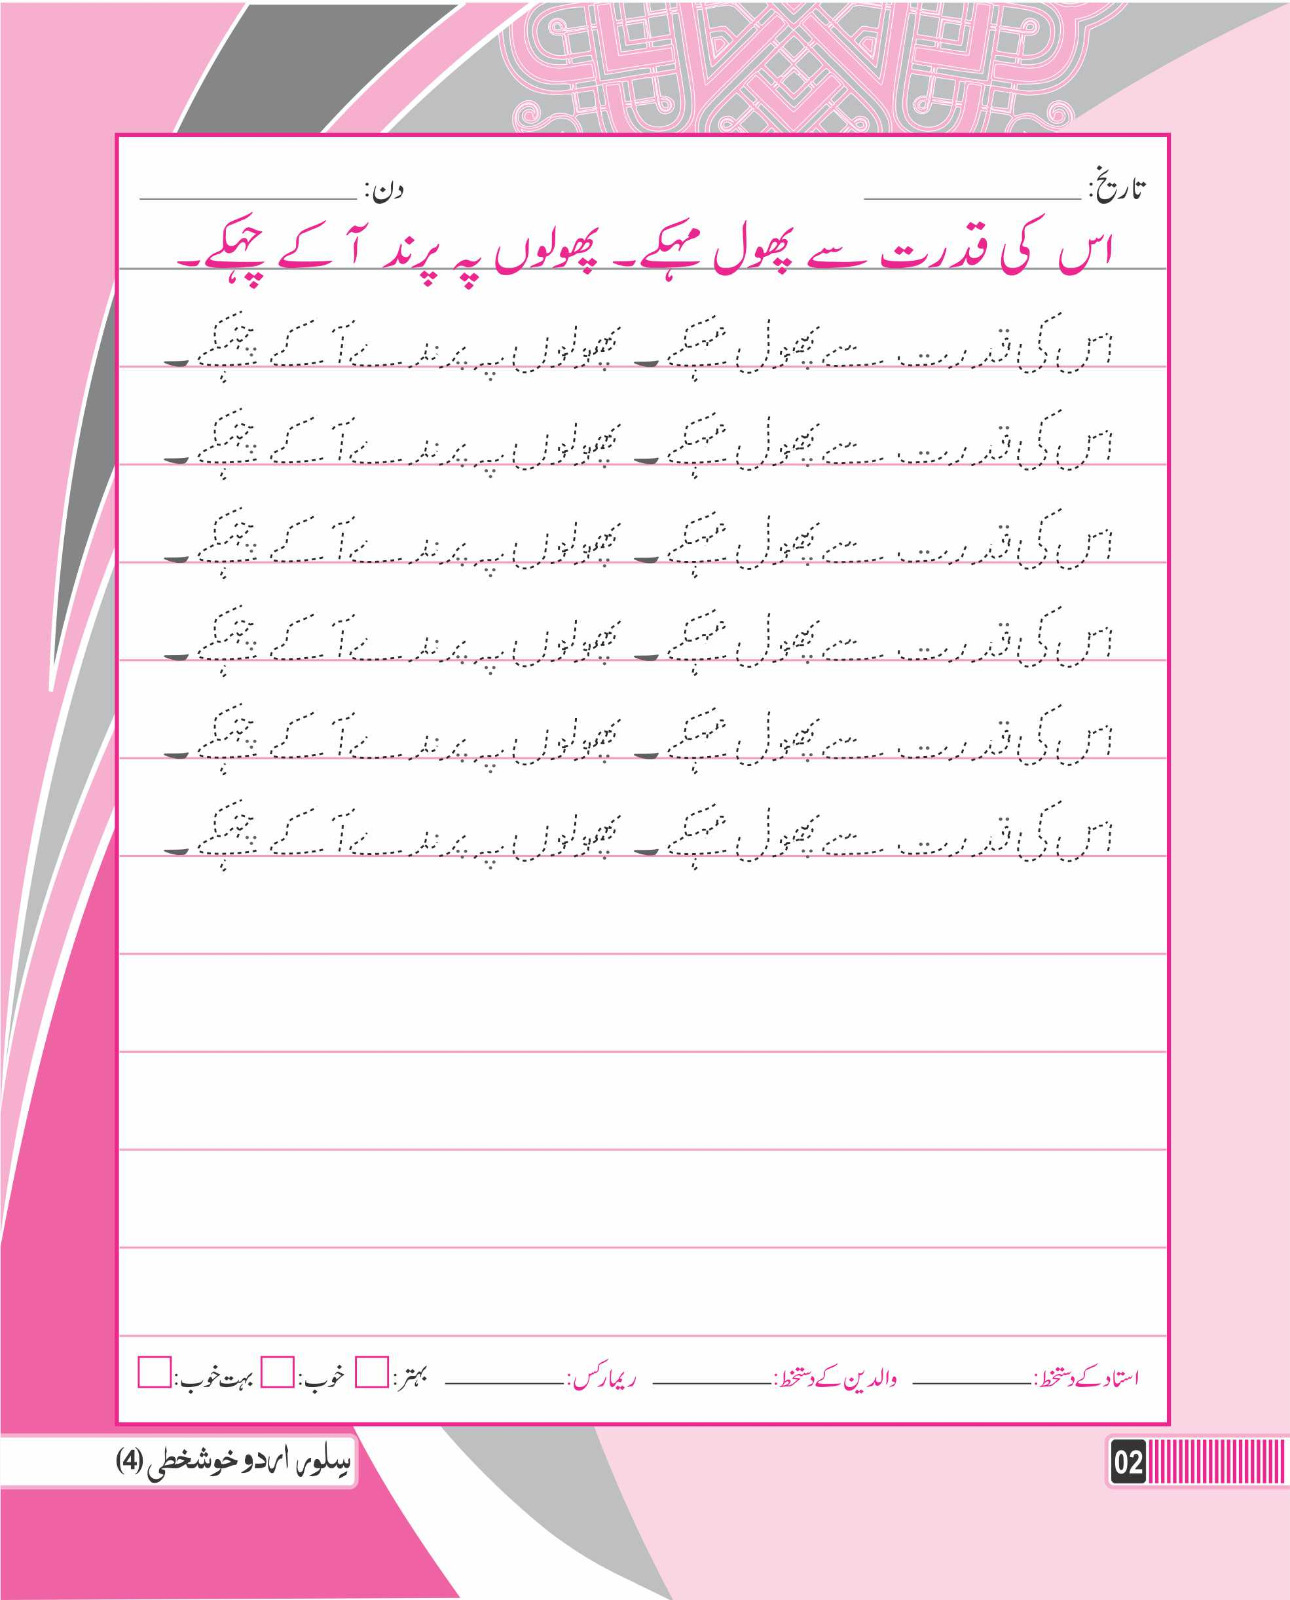 تاریخ: ____________ دن: ____________
اس کی قدرت سے پھول مہکے۔ پھولوں پہ پرند آ کے چہکے۔
اس کی قدرت سے پھول مہکے۔ پھولوں پہ پرندے آ کے چہکے۔
اس کی قدرت سے پھول مہکے۔ پھولوں پہ پرندے آ کے چہکے۔
اس کی قدرت سے پھول مہکے۔ پھولوں پہ پرندے آ کے چہکے۔
اس کی قدرت سے پھول مہکے۔ پھولوں پہ پرندے آ کے چہکے۔
اس کی قدرت سے پھول مہکے۔ پھولوں پہ پرندے آ کے چہکے۔
اس کی قدرت سے پھول مہکے۔ پھولوں پہ پرندے آ کے چہکے۔
استاد کے دستخط: ________ والدین کے دستخط: ________ ریمارکس: ________ بہتر: خوب: بہت خوب:
02 سِلور اردو خوشخطی (4)